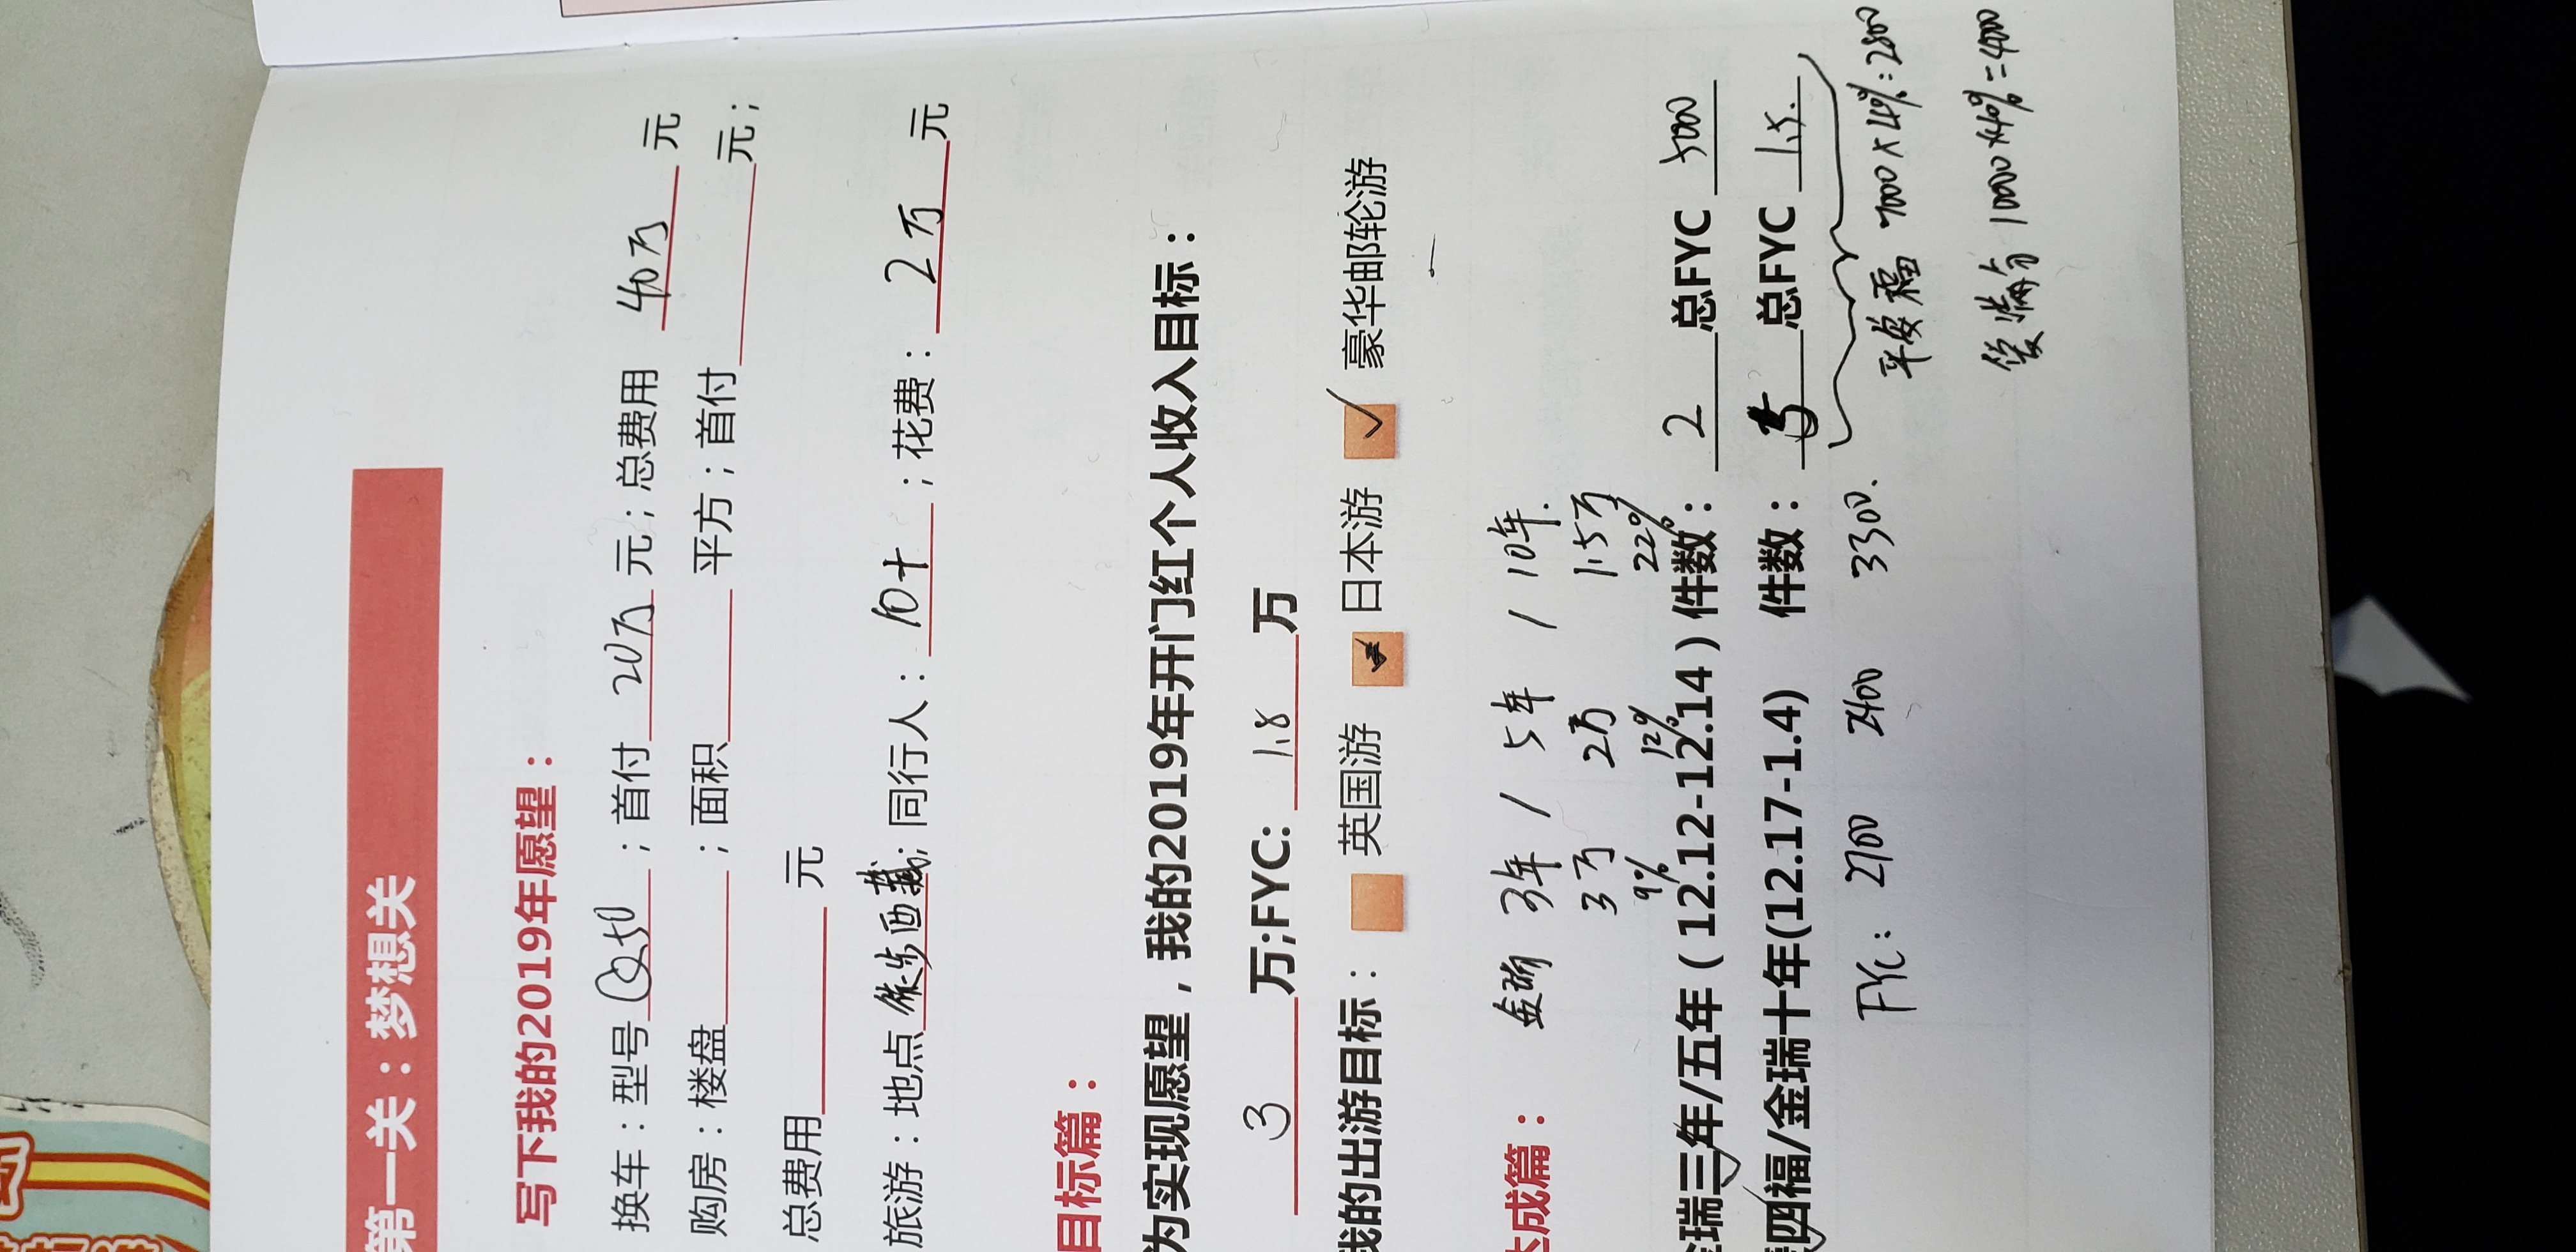 第一关：梦想关
写下我的2019年愿望：
换车：型号 Q50 ；首付 20万 元；总费用 40万 元
购房：楼盘 ；面积 平方；首付 元；
总费用 元
旅游：地点 徒步西藏；同行人： 10+ ；花费： 2万 元
目标篇：
为实现愿望，我的2019年开门红个人收入目标：
3 万;FYC: 1.8 万
我的出游目标： 英国游 日本游 豪华邮轮游
达成篇：
金瑞 3年 / 5年 / 10年.
3万 2万 1.5万
9% 12% 22%
金瑞三年/五年（12.12-12.14）件数： 2 总FYC 5000
四福/金瑞十年(12.17-1.4) 件数： 5 总FYC 1.5.
FYC: 2700 2400 3300.
平安福 7000×40%:2800
10000×40%=4000